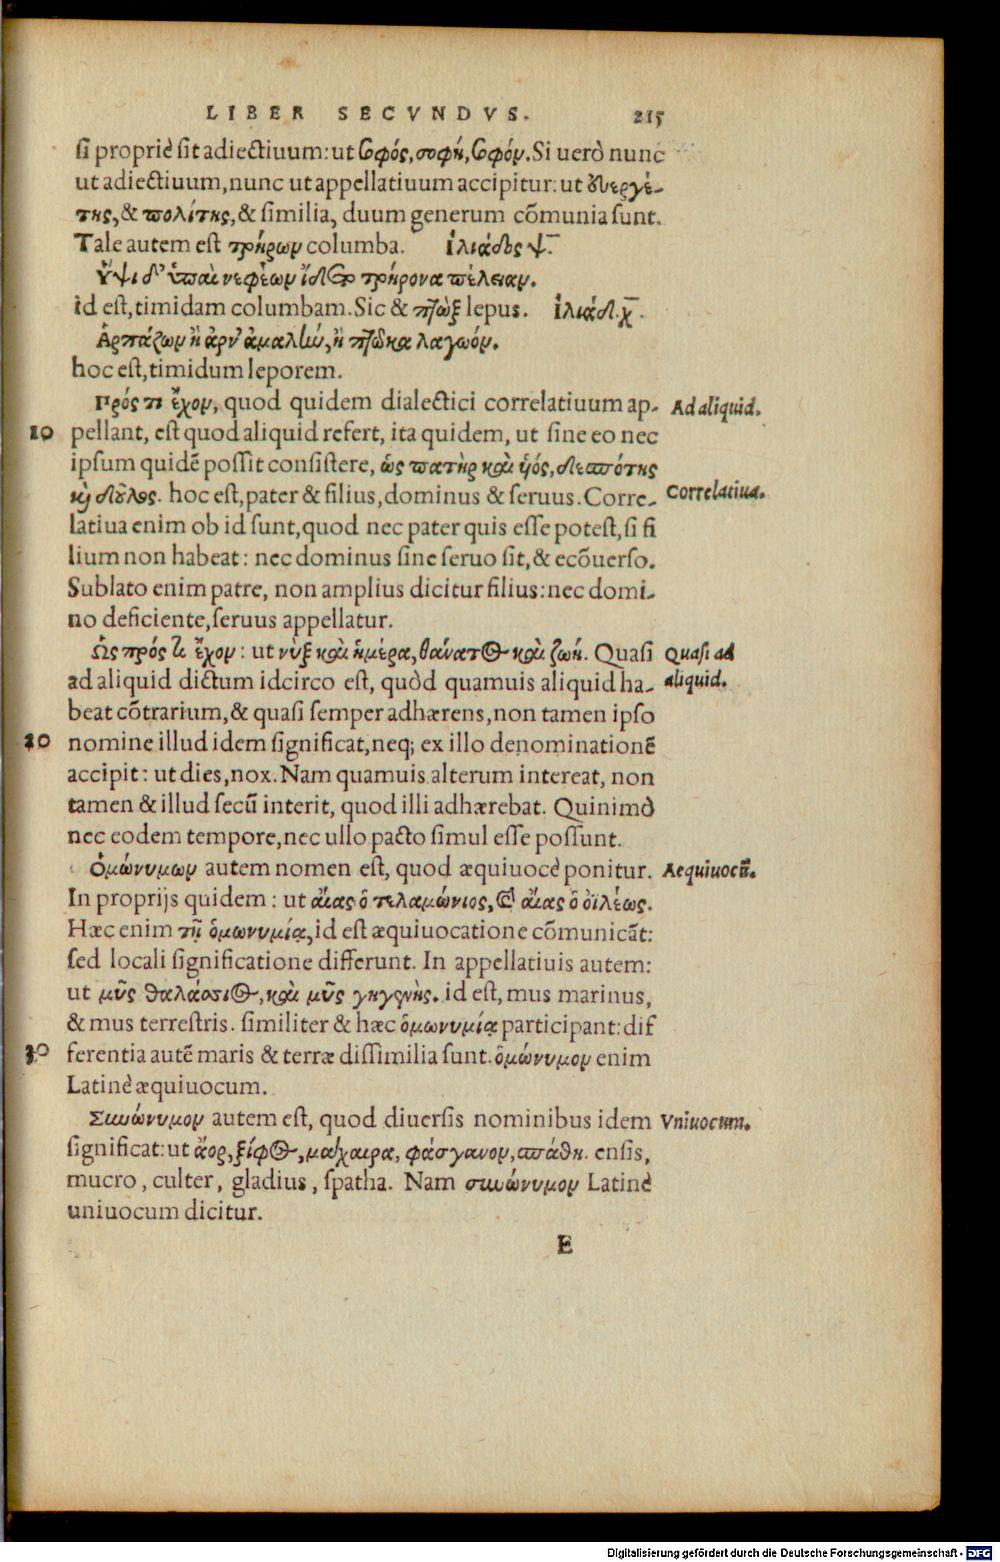 LIBER SECVNDVS. 215
si propriè sit adiectiuum: ut σοφός, σοφή, σοφόν. Si uerò nunc
ut adiectiuum, nunc ut appellatiuum accipitur: ut εὐεργέ-
της, & πολίτης, & similia, duum generum cõmunia sunt.
Tale autem est τρήρων columba. ἰλιάδος ψ̄.
Ὕψι δ' ὑπαὶ νεφέων ἴδετο τρήρονα πέλειαν.
id est, timidam columbam. Sic & πτὼξ lepus. ἰλιάδ. χ̄.
Ἁρπάζων ἢ ἀρν' ἀμαλὴν, ἢ πτῶκα λαγωόν.
hoc est, timidum leporem.
Πρός τι ἔχον, quod quidem dialectici correlatiuum ap- Ad aliquid.
10 pellant, est quod aliquid refert, ita quidem, ut sine eo nec
ipsum quidẽ possit consistere, ὡς πατὴρ καὶ υἱός, δεσπότης
καὶ δοῦλος. hoc est, pater & filius, dominus & seruus. Corre- Correlatiua.
latiua enim ob id sunt, quod nec pater quis esse potest, si fi
lium non habeat: nec dominus sine seruo sit, & ecõuerso.
Sublato enim patre, non amplius dicitur filius: nec domi-
no deficiente, seruus appellatur.
Ὡς πρός τι ἔχον: ut νὺξ καὶ ἡμέρα, θάνατος καὶ ζωή. Quasi Quasi ad
ad aliquid dictum idcirco est, quòd quamuis aliquid ha- aliquid.
beat cõtrarium, & quasi semper adhærens, non tamen ipso
20 nomine illud idem significat, neq; ex illo denominationẽ
accipit: ut dies, nox. Nam quamuis alterum intereat, non
tamen & illud secũ interit, quod illi adhærebat. Quinimò
nec eodem tempore, nec ullo pacto simul esse possunt.
Ὁμώνυμον autem nomen est, quod æquiuocè ponitur. Aequiuocũ.
In proprijs quidem: ut αἴας ὁ τελαμώνιος, & αἴας ὁ ὀϊλέως.
Hæc enim τῇ ὁμωνυμίᾳ, id est æquiuocatione cõmunicãt:
sed locali significatione differunt. In appellatiuis autem:
ut μῦς θαλάσσιος, καὶ μῦς γηγενής. id est, mus marinus,
& mus terrestris. similiter & hæc ὁμωνυμίᾳ participant: dif
30 ferentia autẽ maris & terræ dissimilia sunt. ὁμώνυμον enim
Latinè æquiuocum.
Συνώνυμον autem est, quod diuersis nominibus idem Vniuocum.
significat: ut ἄορ, ξίφος, μάχαιρα, φάσγανον, σπάθη. ensis,
mucro, culter, gladius, spatha. Nam συνώνυμον Latinè
uniuocum dicitur.
E
Digitalisierung gefördert durch die Deutsche Forschungsgemeinschaft - DFG